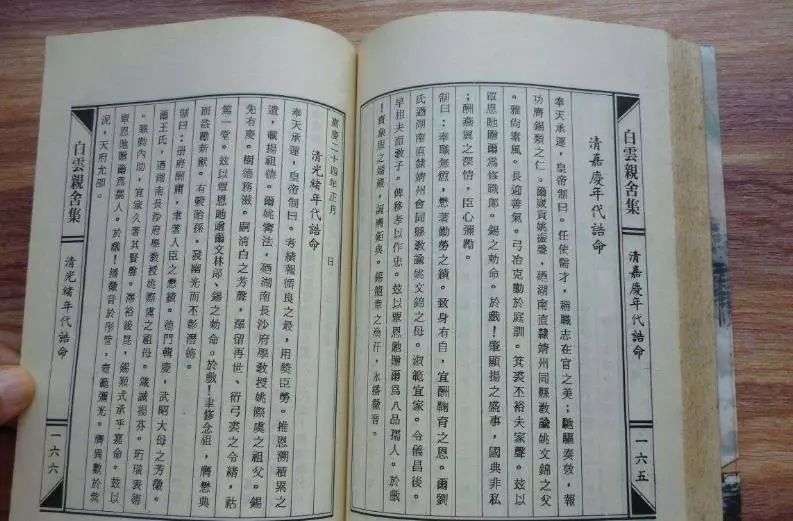 白雲親舍集
清嘉慶年代誥命
一六五
清嘉慶年代誥命
奉天承運，皇帝制曰。任使需才，稱職志在官之美；馳驅奏效，報
功膺錫類之仁。爾歲貢姚振聲，迺湖南直隸靖州同縣教諭姚文錦之父
。雅尚素風。長迎善氣。弓冶克勤於庭訓。箕裘丕裕夫家聲。玆以
覃恩貤贈爾為修職郎。錫之勅命。於戲！肇顯揚之盛事，國典非私
；酬燕翼之深情，臣心彌勵。
制曰：奉職無愆，懋著勤勞之績。致身有自，宜酬鞠育之恩。爾劉
氏迺湖南直隸靖州會同縣教諭姚文錦之母。淑範宜家。令儀昌後。
早相夫而教子。俾移孝以作忠。玆以覃恩貤贈爾為八品孺人。於戲
！賁象服之端嚴，誕膺鉅典。錫龍章之渙汗，永播徽音。
嘉慶二十四年正月　日
清光緒年代誥命
奉天承運，皇帝制曰。考績報循良之最，用獎臣勞。推恩溯積累之
遺，載揚祖德。爾姚實法，迺湖南長沙府學教授姚際虞之祖父。錫
先有慶。樹德務滋。嗣清白之芳聲，澤留再世、衍弓裘之令緒，祜
篤一堂。玆以覃恩貤贈爾文林郎、錫之勅命。於戲！聿修念祖，膺懋典
而益勵新猷。有穀貽孫，發幽光而丕彰潛德。
制曰：冊府酬庸，聿著人臣之懋績。德門輯慶，武昭大母之芳徽。
爾王氏，迺湖南長沙府學教授姚際虞之祖母。箴誡揚芬。珩璜表德
。職勤內助，宜家久著其賢聲。澤裕後昆，錫類式承乎嘉命。玆以
覃恩貤贈爾為孺人。於戲！播徽音於彤管，壼範彌光。膺異數於紫
泥，天府允卲。
白雲親舍集
清光緒年代誥命
一六六